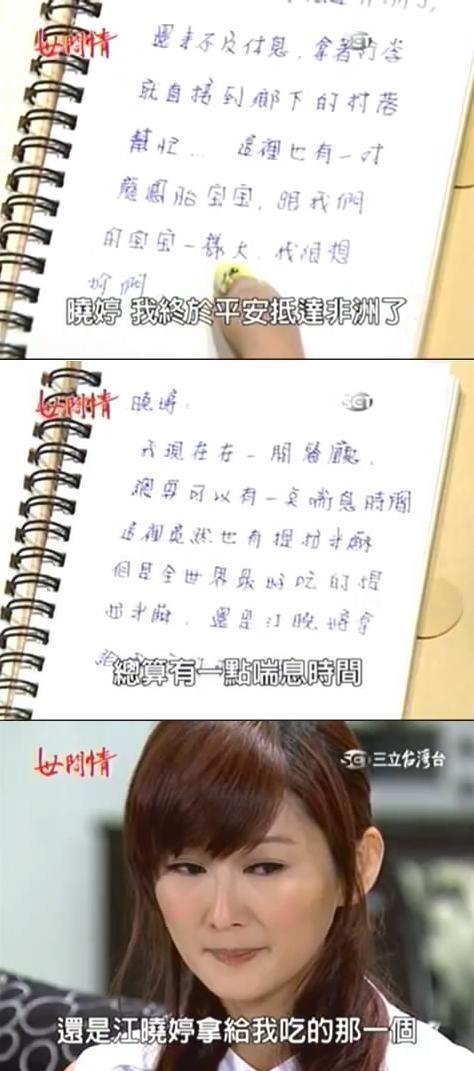 世間情
還來不及休息,拿著行李
就直接到鄉下的村落
幫忙... 這裡也有一對
龍鳳胎宝宝,跟我們
的宝宝一樣大,我很想
妳們
曉婷 我終於平安抵達非洲了
世間情 曉婷: SET
我現在在一間醫廳,
總算可以有一点喘息時間
這裡竟然也有提拉米蘇
但是全世界最好吃的提
拉米蘇,還是江曉婷拿
給
總算有一點喘息時間
世間情 SET 三立台灣台
還是江曉婷拿給我吃的那一個